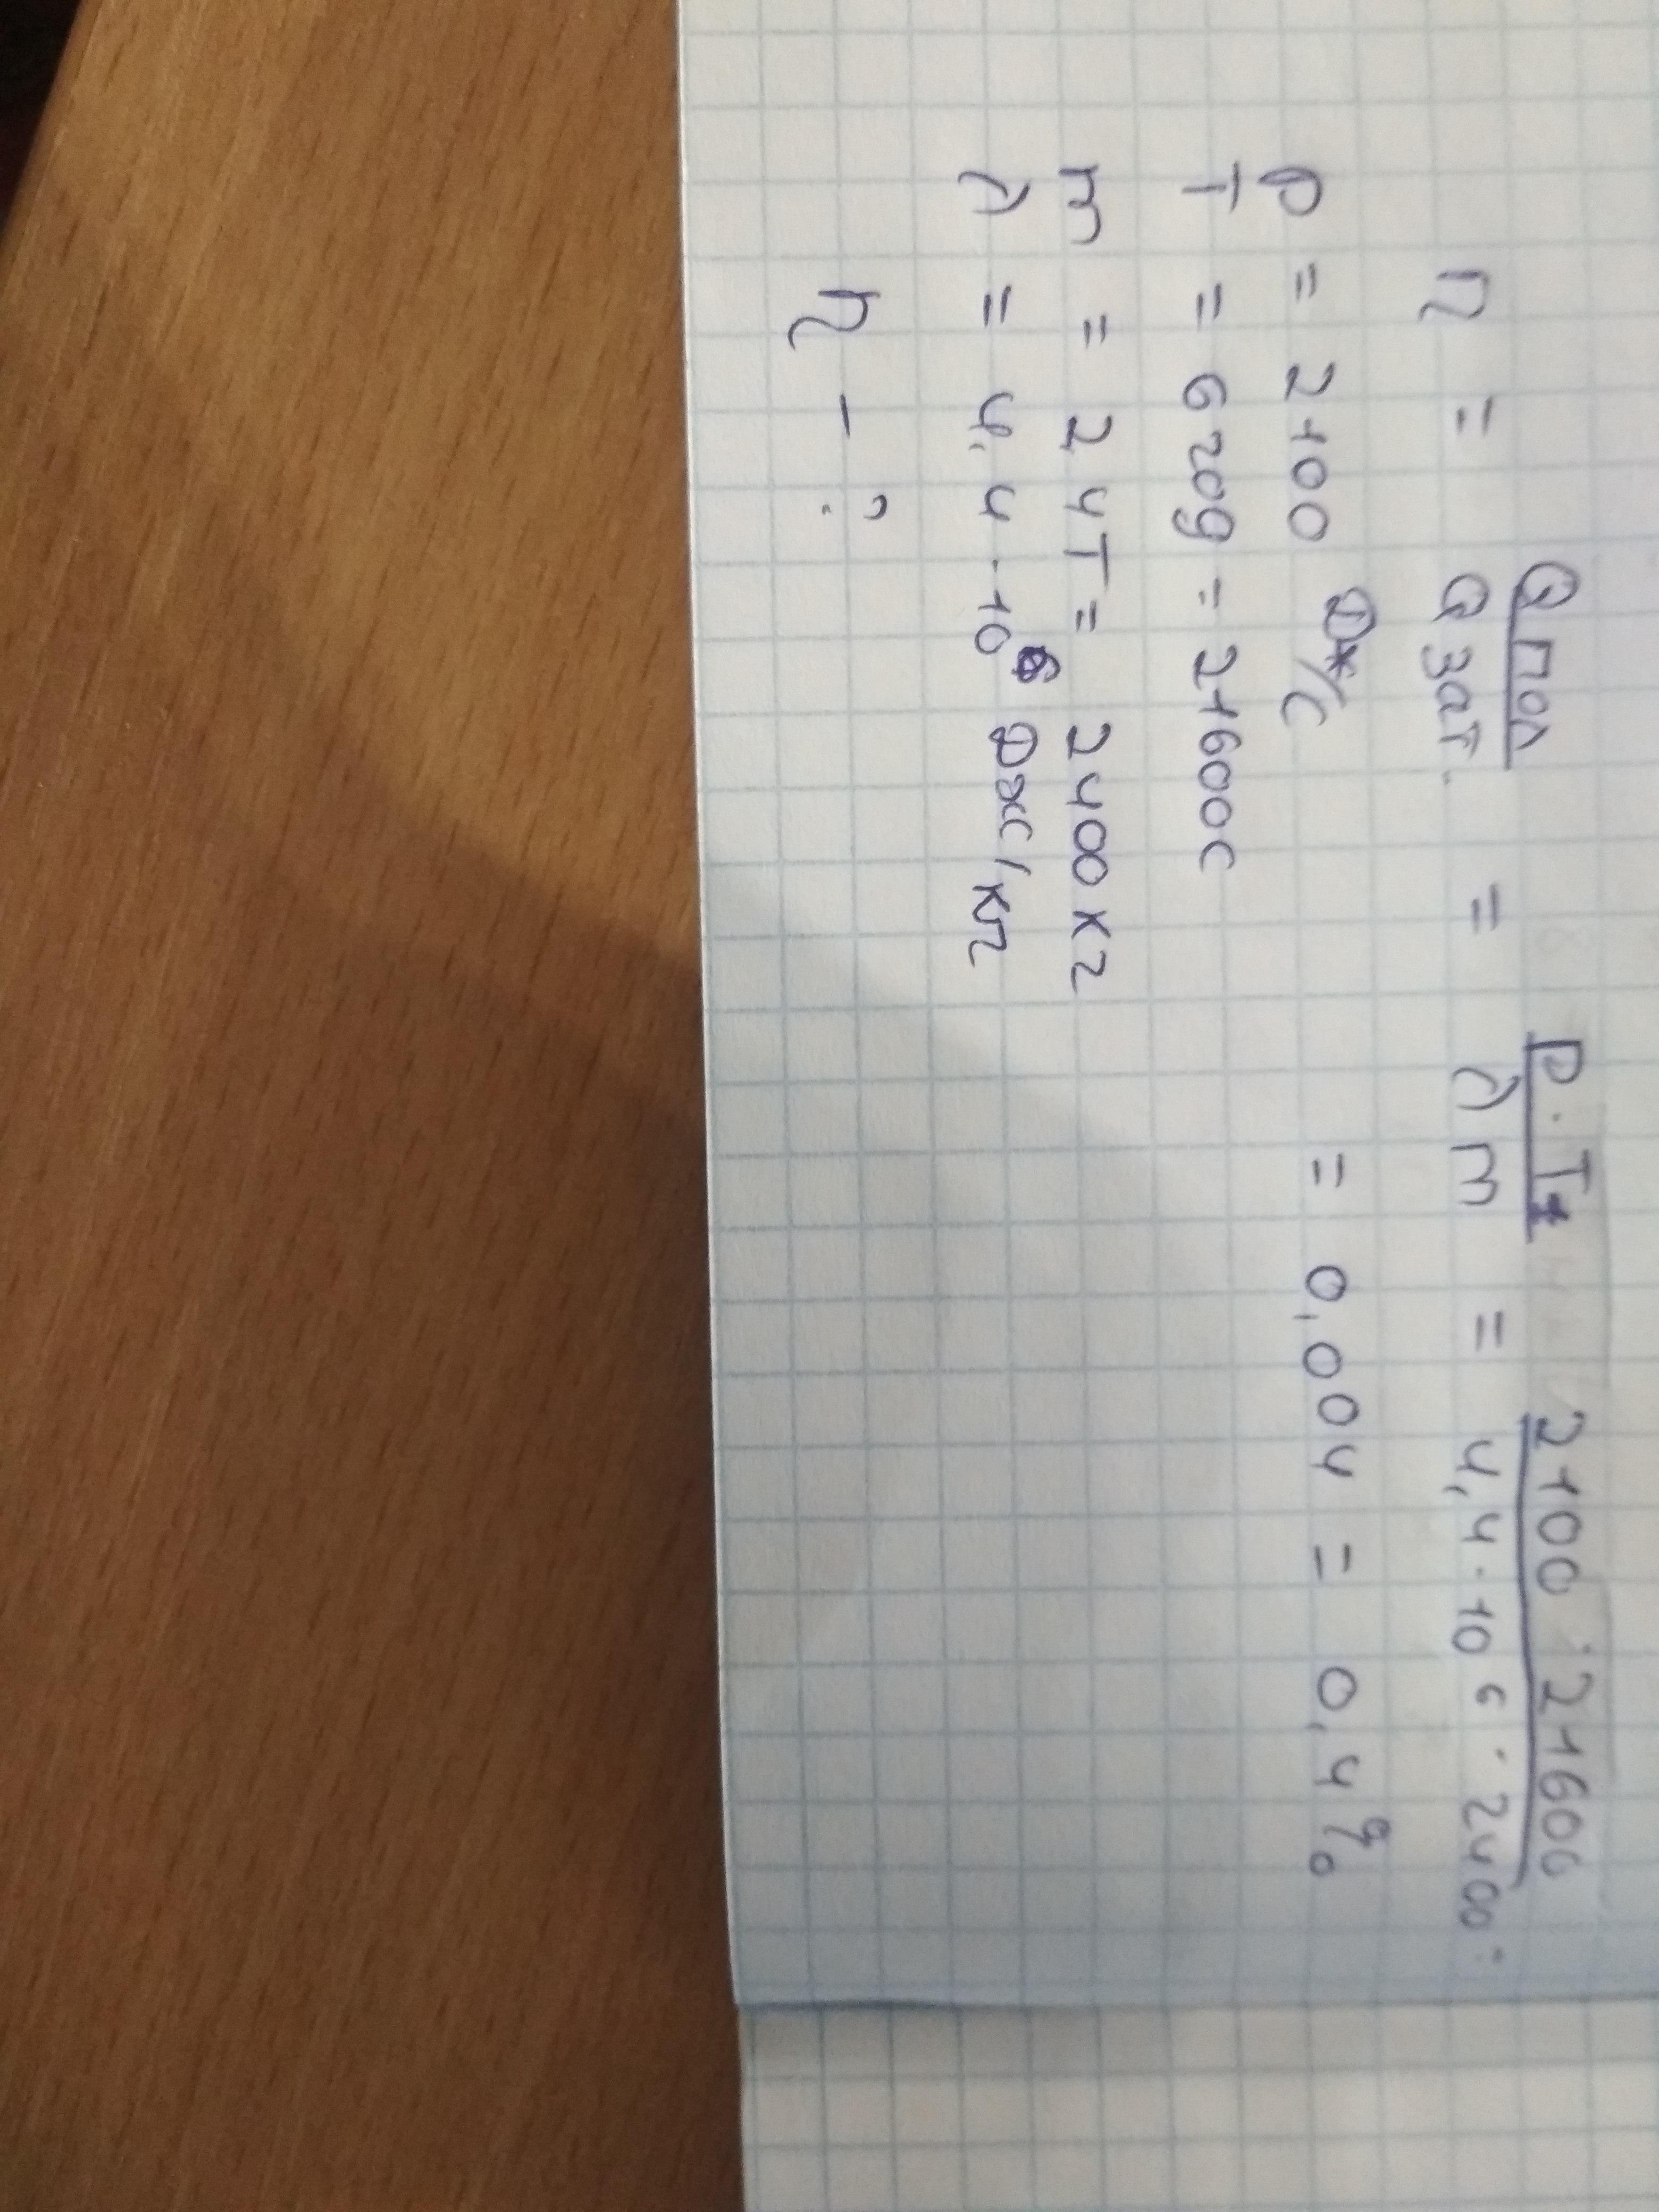 η = Q пол / Q зат. = P · T / λ m = 2100 · 21600 / 4,4 · 10⁶ · 2400 =
P = 2100 Дж/с = 0,004 = 0,4%
T = 6 год = 21600 с
m = 2 4 Т = 2400 кг
λ = 4,4 · 10⁶ Дж/кг
η - ?